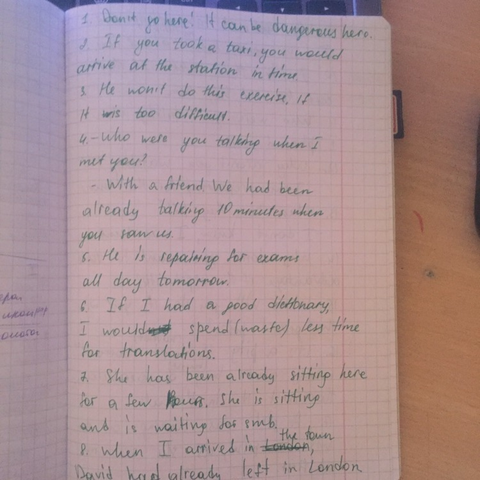 1. Don't go here! It can be dangerous here.
2. If you took a taxi, you would
arrive at the station in time.
3. He won't do this exercise, if
it is too difficult.
4. – Who were you talking when I
met you?
- With a friend. We had been
already talking 10 minutes when
you saw us.
5. He is repairing for exams
all day tomorrow.
6. If I had a good dictionary,
I would spend (waste) less time
for translations.
7. She has been already sitting here
for a few hours. She is sitting
and is waiting for smb.
8. When I arrived in the town,
David had already left in London